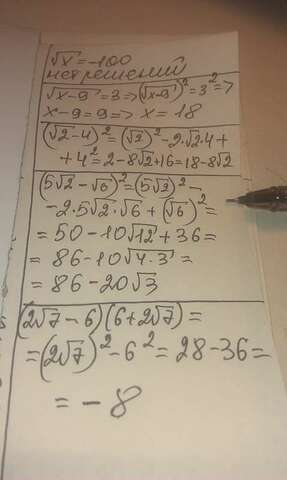 √x = -100
нет решений
√x-9 = 3 => (√x-9)² = 3² =>
x-9=9=> x = 18
(√2-4)² = (√2)² - 2·√2·4+
+4² = 2-8√2+16=18-8√2
(5√2 - √6)² = (5√2)² -
-2·5√2·√6 + (√6)² =
= 50 - 10√12 + 36 =
= 86 - 10√4·3 =
= 86 - 20√3
(2√7 - 6)(6+2√7) =
= (2√7)² - 6² = 28 - 36 =
= - 8